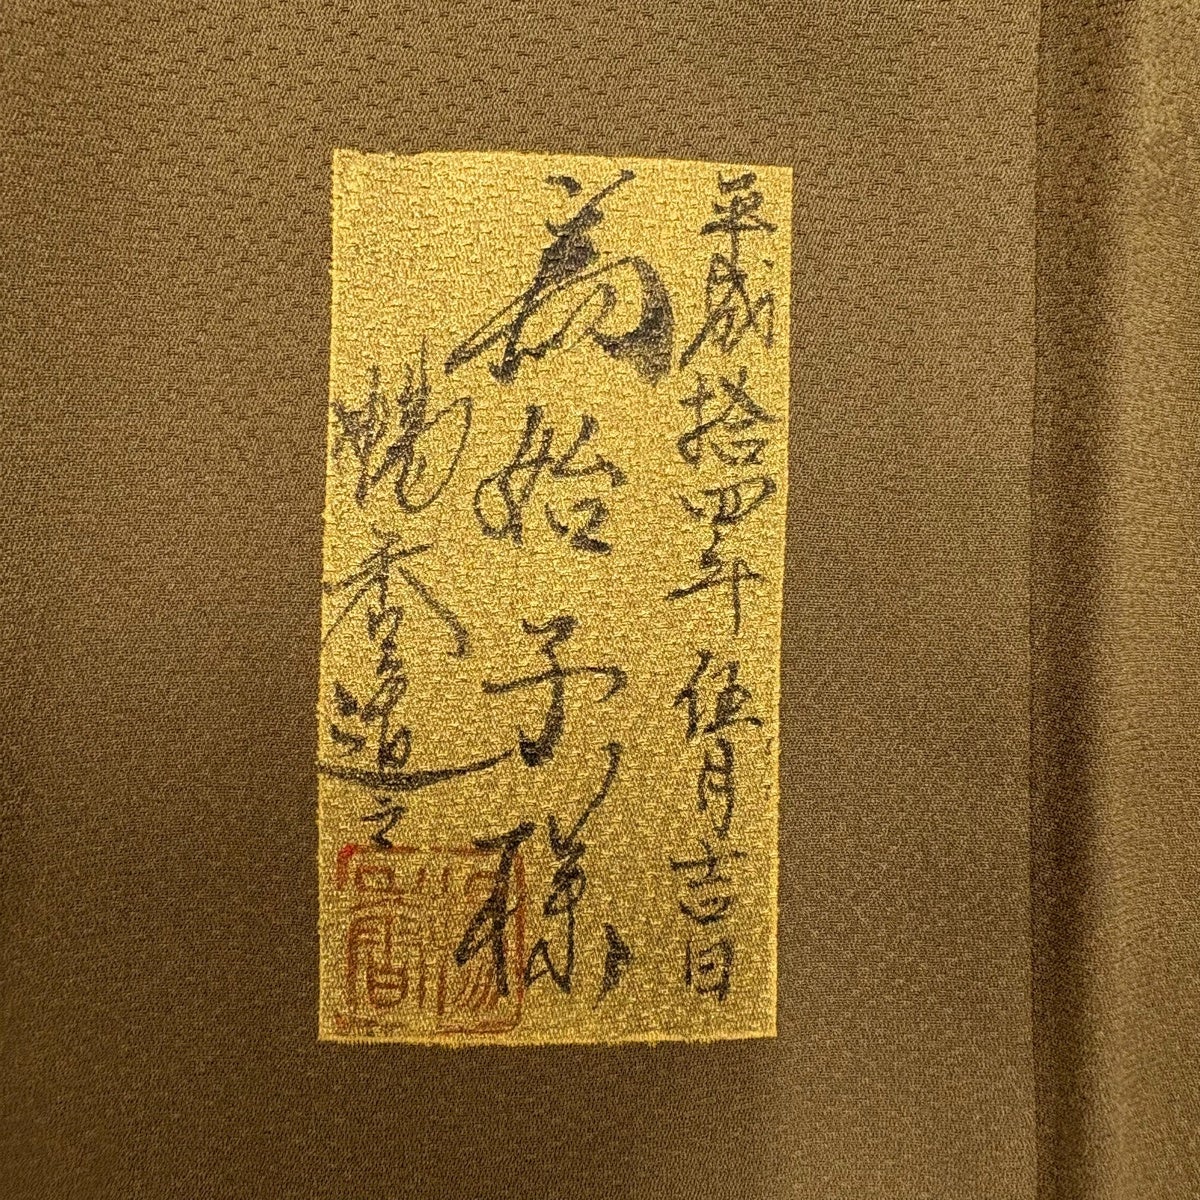 平成拾四年 伍月吉日
為 始予様
暢香道之